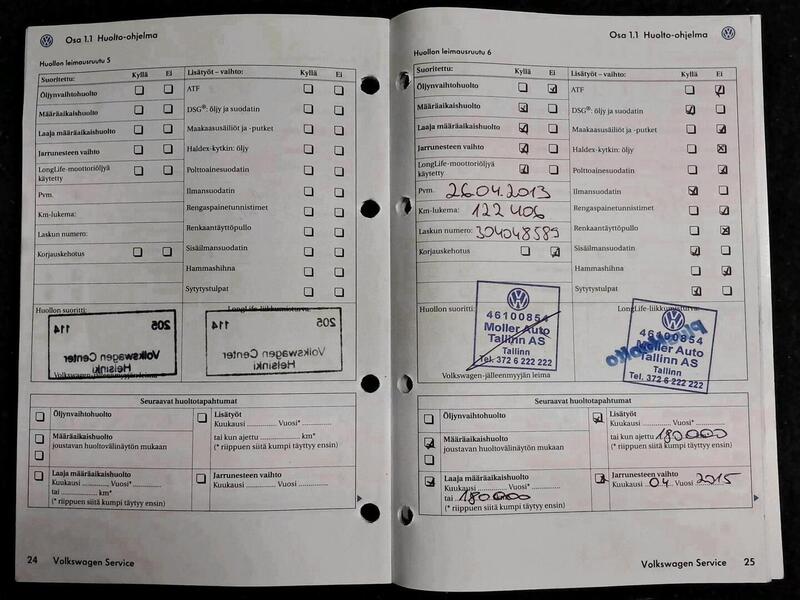 Osa 1.1 Huolto-ohjelma
Huollon leimausruutu 5
Suoritettu: Kyllä Ei
Öljynvaihtohuolto
Määräaikaishuolto
Laaja määräaikaishuolto
Jarrunesteen vaihto
LongLife-moottoriöljyä
käytetty
Pvm.
Km-lukema:
Laskun numero:
Korjauskehotus
Lisätyöt – vaihto: Kyllä Ei
ATF
DSG®: öljy ja suodatin
Maakaasusäiliöt ja -putket
Haldex-kytkin: öljy
Polttoainesuodatin
Ilmansuodatin
Rengaspainetunnistimet
Renkaantäyttöpullo
Sisäilmansuodatin
Hammashihna
Sytytystulpat
Huollon suoritti:
LongLife-liikkumisturva
205 114
Volkswagen Center
Helsinki
205 114
Volkswagen Center
Helsinki
Volkswagen-jälleenmyyjän leima
Seuraavat huoltotapahtumat
Öljynvaihtohuolto
Määräaikaishuolto
joustavan huoltovälinäytön mukaan
Laaja määräaikaishuolto
Kuukausi .......... Vuosi* ..........
tai .......... km*
(* riippuen siitä kumpi täyttyy ensin)
Lisätyöt
Kuukausi .......... Vuosi* ..........
tai kun ajettu .......... km*
(* riippuen siitä kumpi täyttyy ensin)
Jarrunesteen vaihto
Kuukausi .......... Vuosi ..........
24 Volkswagen Service
Osa 1.1 Huolto-ohjelma
Huollon leimausruutu 6
Suoritettu: Kyllä Ei
Öljynvaihtohuolto
Määräaikaishuolto
Laaja määräaikaishuolto
Jarrunesteen vaihto
LongLife-moottoriöljyä
käytetty
Pvm. 26.04.2013
Km-lukema: 122 406
Laskun numero: 304048589
Korjauskehotus
Lisätyöt – vaihto: Kyllä Ei
ATF
DSG®: öljy ja suodatin
Maakaasusäiliöt ja -putket
Haldex-kytkin: öljy
Polttoainesuodatin
Ilmansuodatin
Rengaspainetunnistimet
Renkaantäyttöpullo
Sisäilmansuodatin
Hammashihna
Sytytystulpat
Huollon suoritti:
LongLife-liikkumisturva
46100854
Moller Auto
Tallinn AS
Tallinn
Tel. 372 6 222 222
46100854
Moller Auto
Tallinn AS
Tallinn
Tel. 372 6 222 222
Volkswagen-jälleenmyyjän leima
Seuraavat huoltotapahtumat
Öljynvaihtohuolto
Määräaikaishuolto
joustavan huoltovälinäytön mukaan
Laaja määräaikaishuolto
Kuukausi .......... Vuosi* ..........
tai 180000
(* riippuen siitä kumpi täyttyy ensin)
Lisätyöt
Kuukausi .......... Vuosi* ..........
tai kun ajettu 180000
(* riippuen siitä kumpi täyttyy ensin)
Jarrunesteen vaihto
Kuukausi 04 Vuosi 2015
Volkswagen Service 25